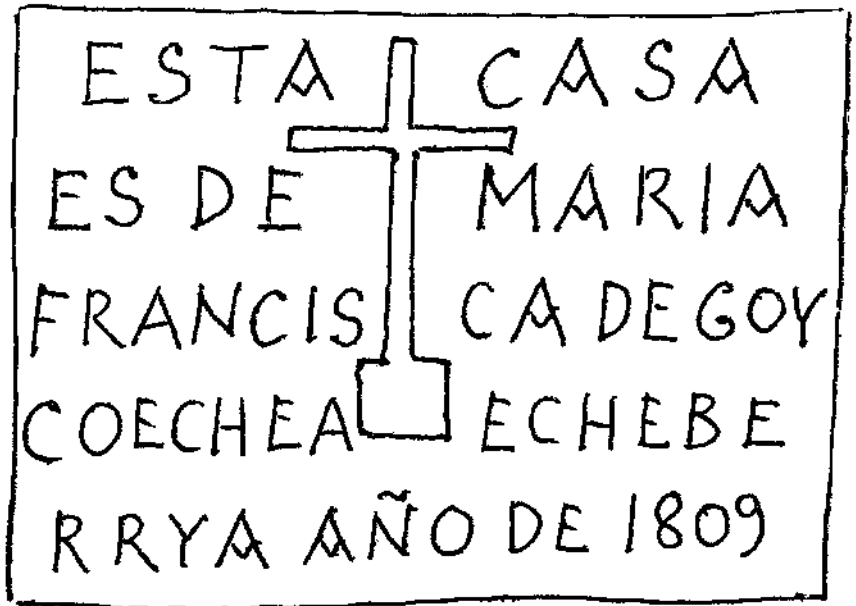 ESTA CASA
ES DE MARIA
FRANCIS CA DE GOY
COECHEA ECHEBE
RRYA AÑO DE 1809